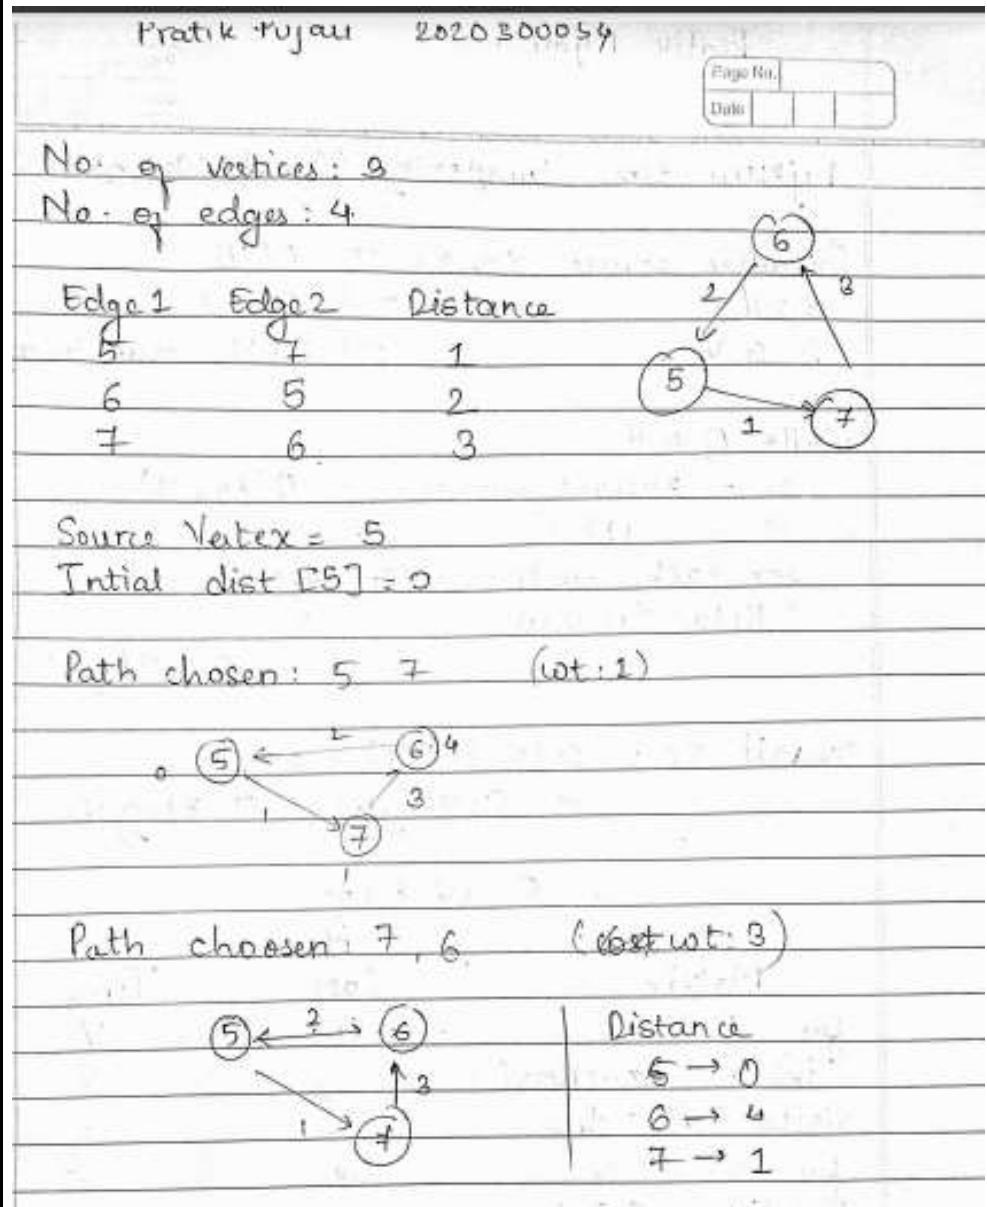 Pratik Pujari 2020300054
Page No.
Date
No. of vertices: 3
No. of edges: 4
Edge 1 Edge 2 Distance
5 7 1
6 5 2
7 6 3
6
2 3
5
1 7
Source Vertex = 5
Intial dist [5] = 0
Path chosen: 5 7 (wt: 1)
2
0 5 6 4
1 3
7
1
Path choosen: 7, 6 (wt: 3)
5 2 6
3
1 7
Distance
5 → 0
6 → 4
7 → 1